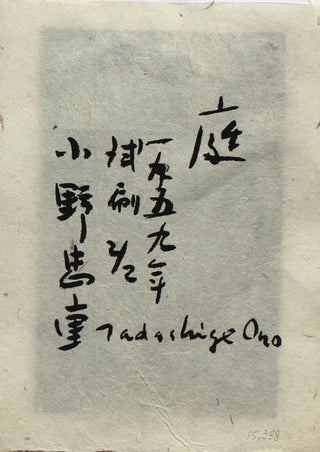 庭
一九五九年
試刷 2/2
小野忠重
Tadashige Ono
15.388